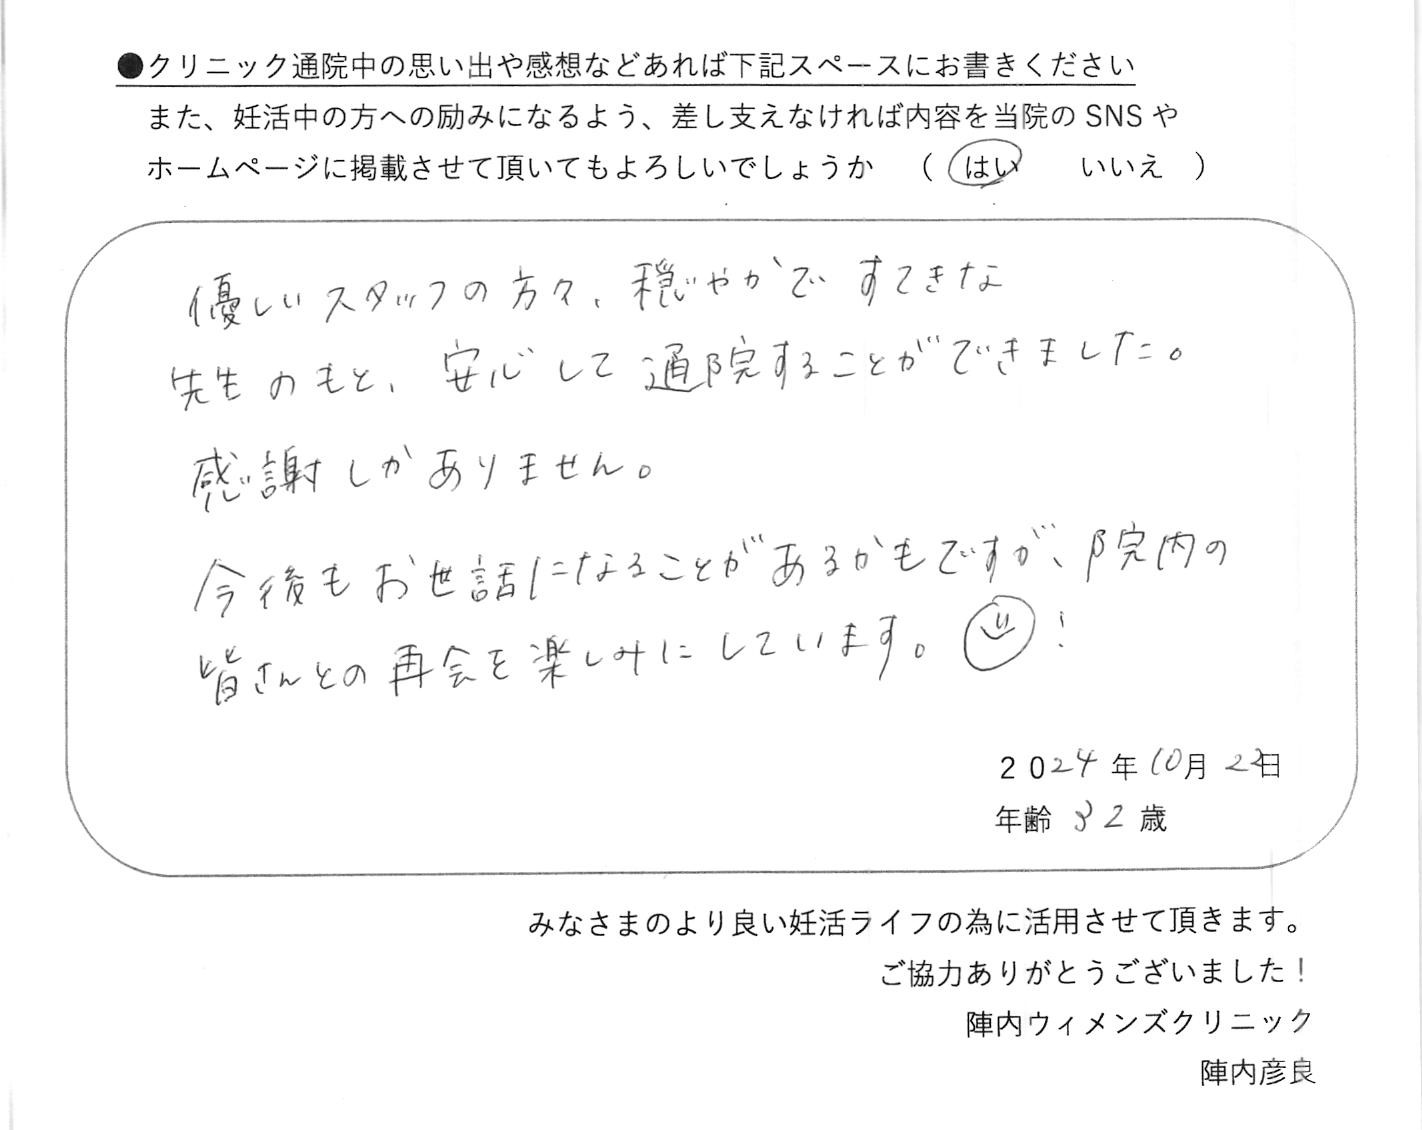 ●クリニック通院中の思い出や感想などあれば下記スペースにお書きください
また、妊活中の方への励みになるよう、差し支えなければ内容を当院の SNS や
ホームページに掲載させて頂いてもよろしいでしょうか （ はい いいえ ）
優しいスタッフの方々、穏やかで すてきな
先生のもと、安心して通院することができました。
感謝しかありません。
今後もお世話になることがあるかもですが、院内の
皆さんとの再会を楽しみにしています。！
２０24 年 10月 22日
年齢 32 歳
みなさまのより良い妊活ライフの為に活用させて頂きます。
ご協力ありがとうございました！
陣内ウィメンズクリニック
陣内彦良